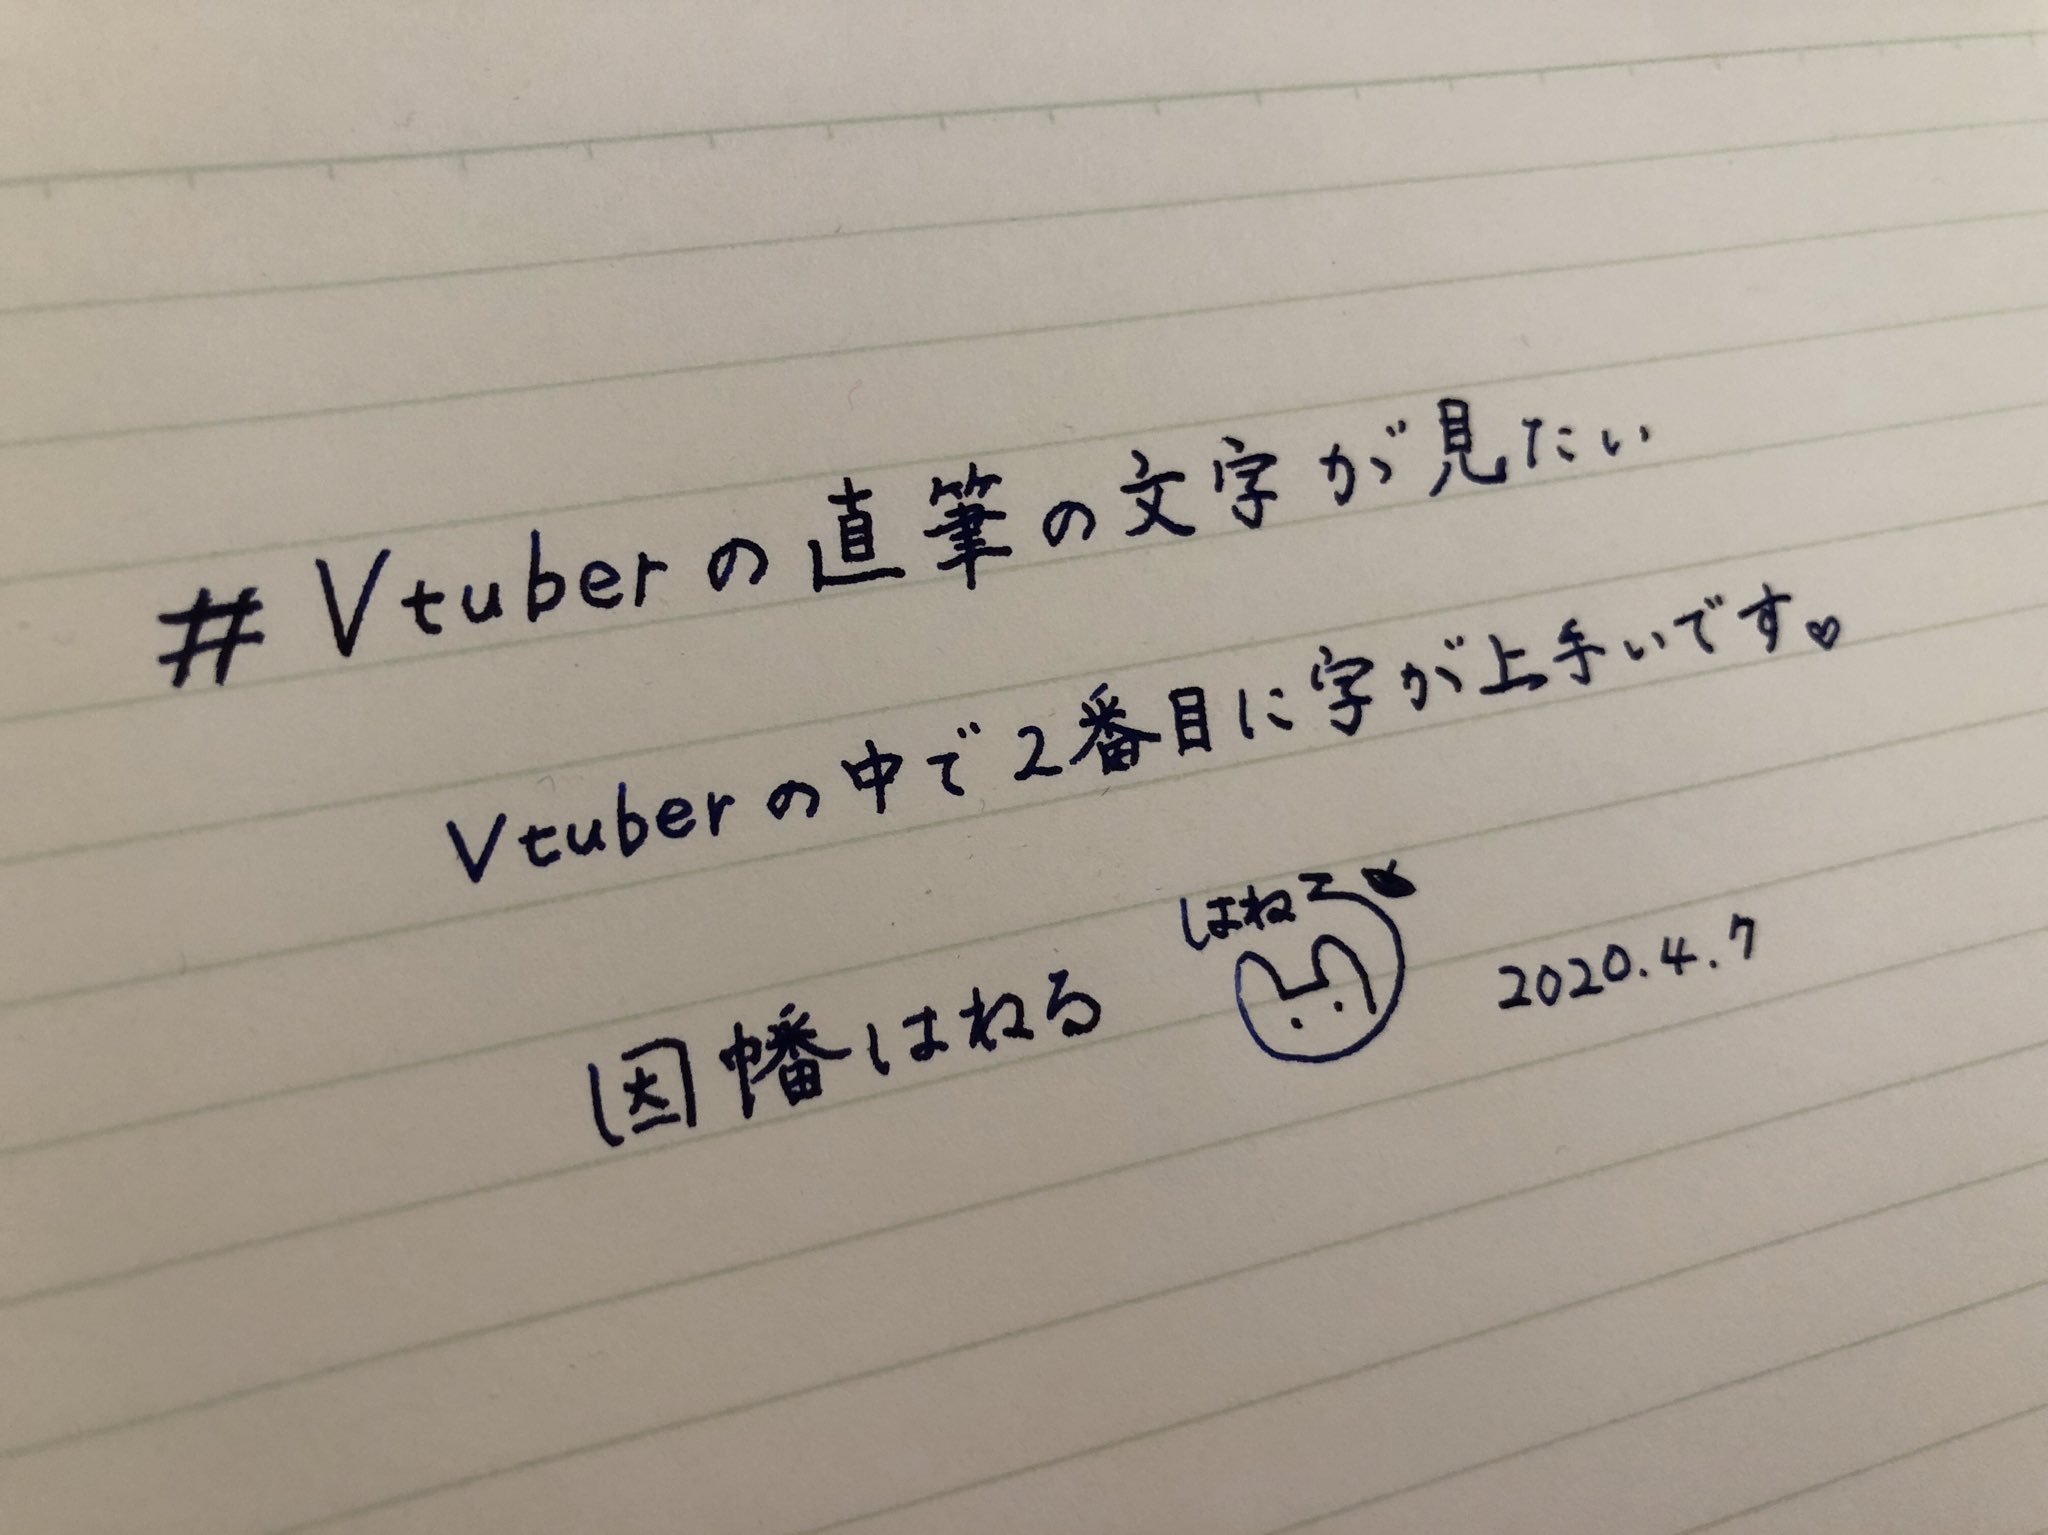 #Vtuberの直筆の文字が見たい
Vtuberの中で2番目に字が上手いです♡
因幡はねる はねる 2020.4.7